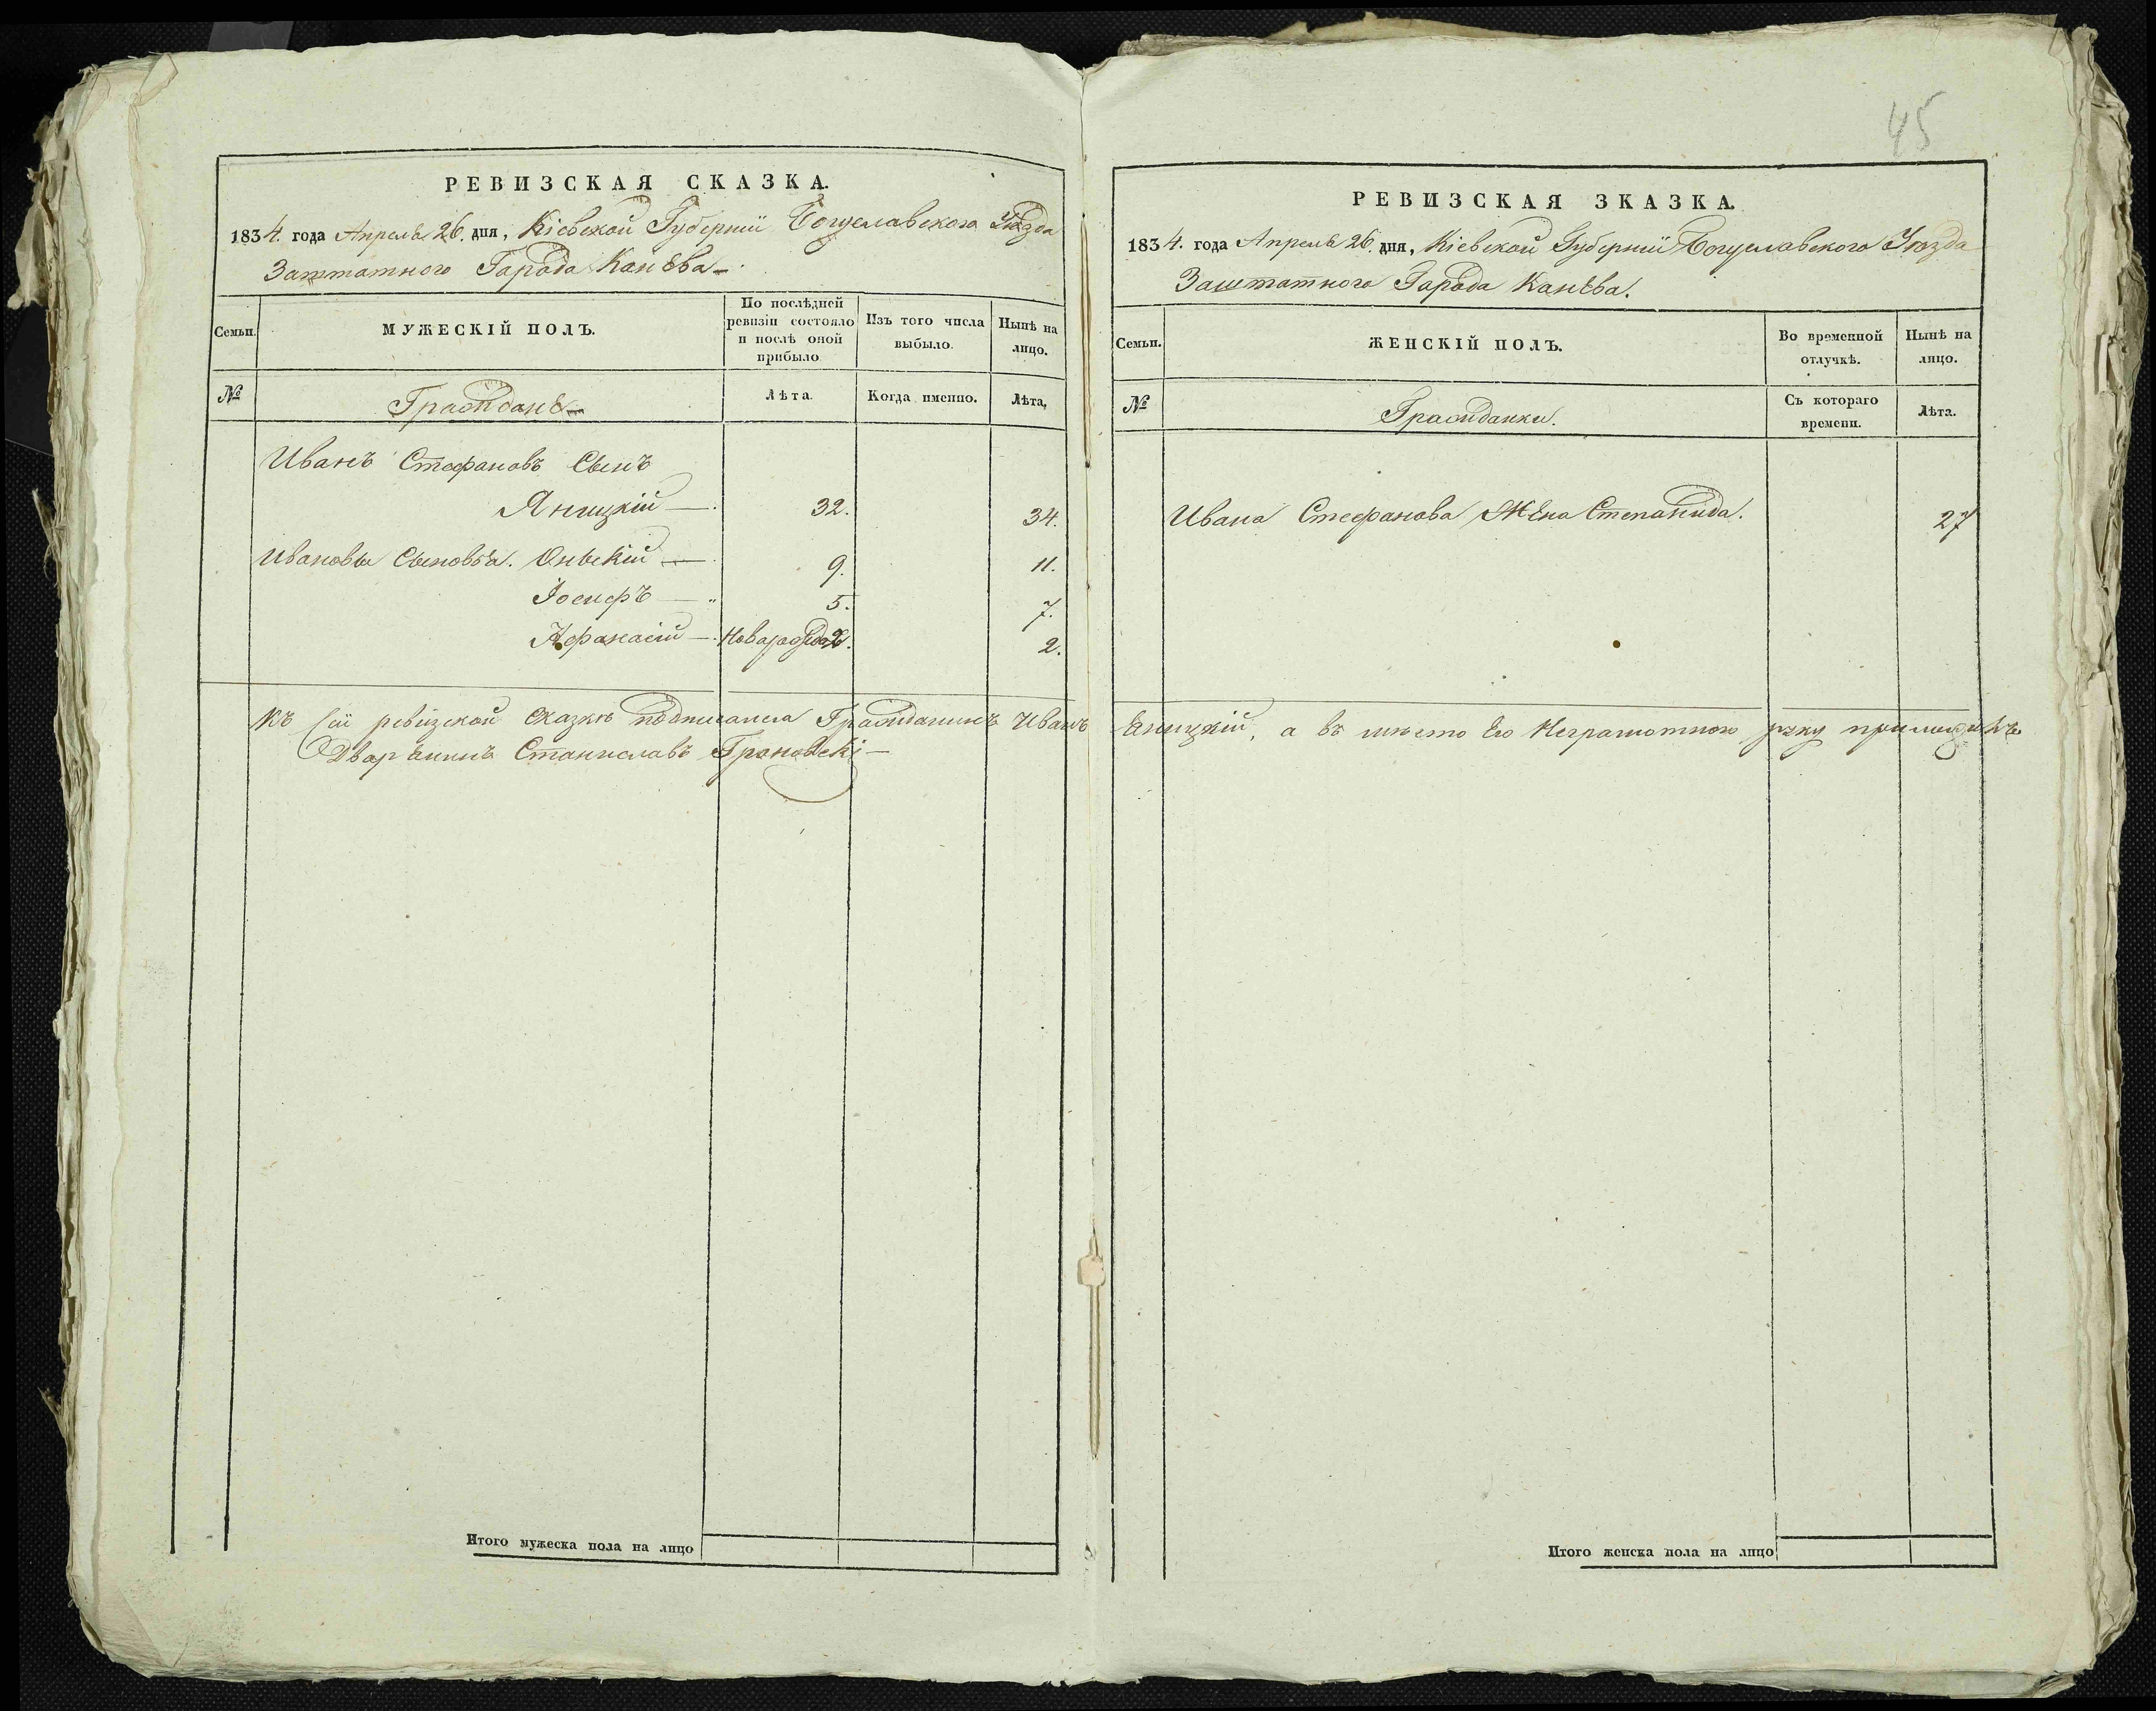 45
РЕВИЗСКАЯ СКАЗКА.
1834. года Апреля 26. дня, Кіевской Губерніи Богуславского Уѣзда
Заштатного Гарода Канева
Семьи.
МУЖЕСКІЙ ПОЛЪ.
По послѣдней ревизіи состояло и послѣ оной прибыло
Изъ того числа выбыло.
Нынѣ на лицо.
№
Граждане
Лѣта.
Когда именно.
Лѣта.
Иванъ Стефановъ Сынъ
Яницкій — 32. 34.
Ивановы Сыновья. — 9. 11.
Іосифъ — 5. 7.
Афанасій — 2.
Къ сій ревизской сказки подписался Гражданинъ Иванъ
Дварянинъ Станиславъ
Итого мужеска пола на лицо
РЕВИЗСКАЯ ЗКАЗКА.
1834. года Апреля 26. дня, Кіевской Губерніи Богуславского Уѣзда
Заштатного Гарода Канева.
Семьи.
ЖЕНСКІЙ ПОЛЪ.
Во временной отлучкѣ.
Нынѣ на лицо.
№
Гражданки.
Съ котораго времени.
Лѣта.
Ивана Стефанова Жена Степанида. 27
Яницкій, а въ мѣсто его Неграмотного руку приложилъ
Итого женска пола на лицо